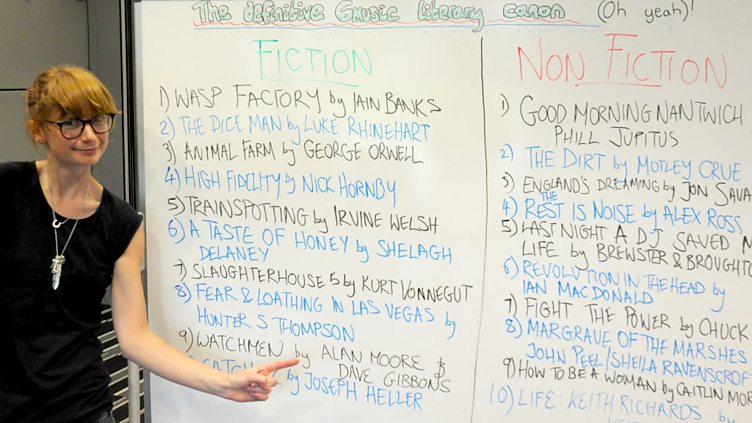 The definitive 6music literary canon (Oh yeah)!
FICTION
1) WASP FACTORY by IAIN BANKS
2) THE DICE MAN by LUKE RHINEHART
3) ANIMAL FARM by GEORGE ORWELL
4) HIGH FIDELITY by NICK HORNBY
5) TRAINSPOTTING by IRVINE WELSH
6) A TASTE OF HONEY by SHELAGH
DELANEY
7) SLAUGHTERHOUSE 5 by KURT VONNEGUT
8) FEAR & LOATHING IN LAS VEGAS by
HUNTER S THOMPSON
9) WATCHMEN by ALAN MOORE &
DAVE GIBBONS
by JOSEPH HELLER
NON FICTION
1) GOOD MORNING NANTWICH
PHILL JUPITUS
2) THE DIRT by MOTLEY CRUE
3) ENGLAND'S DREAMING by JON SAVA
4) THE REST IS NOISE by ALEX ROSS
5) LAST NIGHT A DJ SAVED M
LIFE by BREWSTER & BROUGHTO
6) REVOLUTION IN THE HEAD by
IAN MACDONALD
7) FIGHT THE POWER by CHUCK
8) MARGRAVE OF THE MARSHES
JOHN PEEL/SHEILA RAVENSCROFT
9) HOW TO BE A WOMAN by CAITLIN MOR
10) LIFE: KEITH RICHARDS by